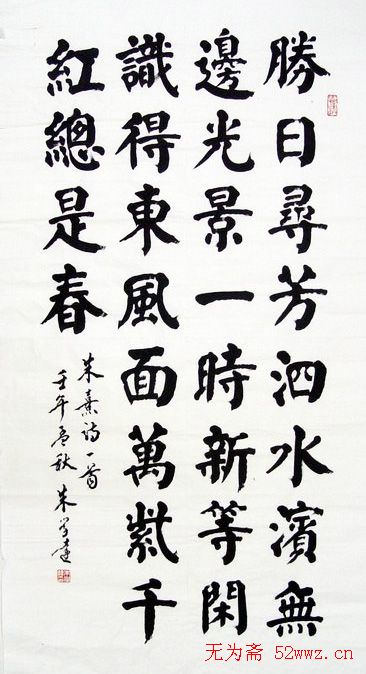 勝日尋芳泗水濱無
邊光景一時新等閑
識得東風面萬紫千
紅總是春
朱熹詩一首
壬午孟秋 朱学達
无为斋 52wwz.cn